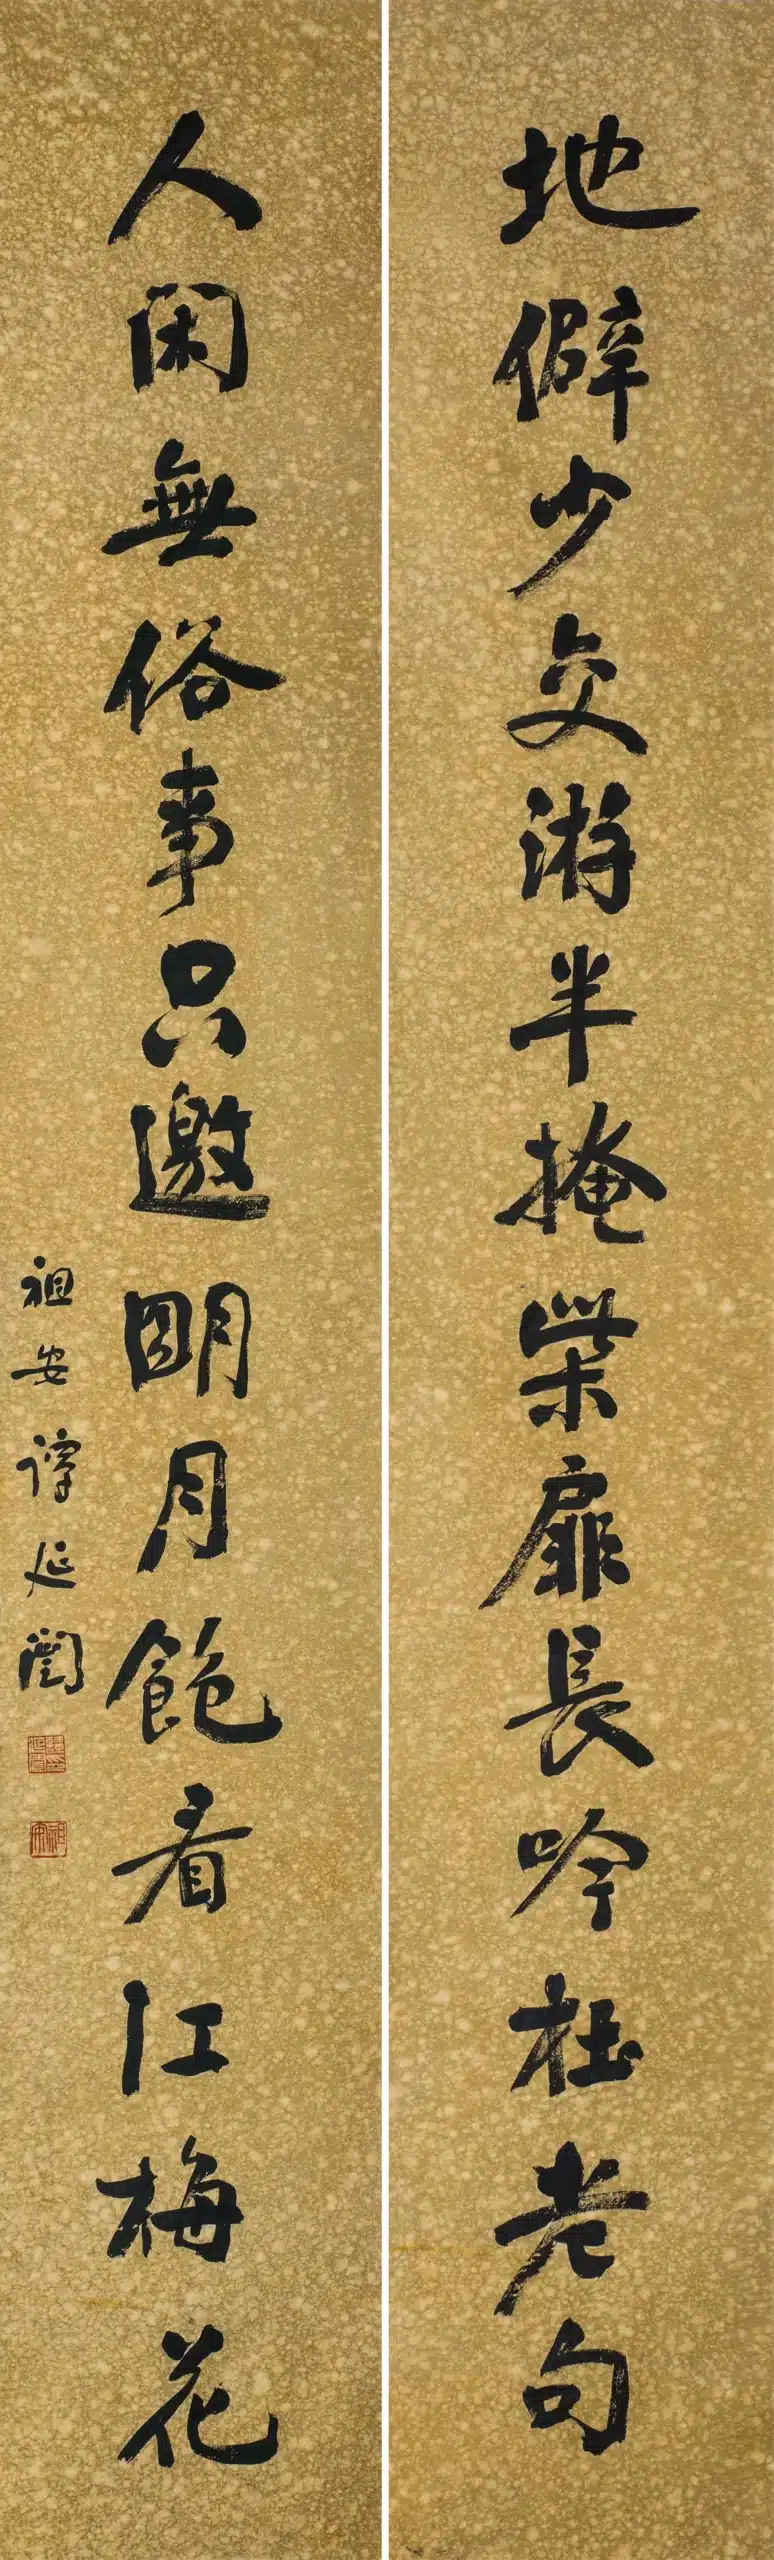 地僻少交游半掩柴扉長吟杜老句
人閑無俗事只邀明月飽看江梅花
祖安譚延闓